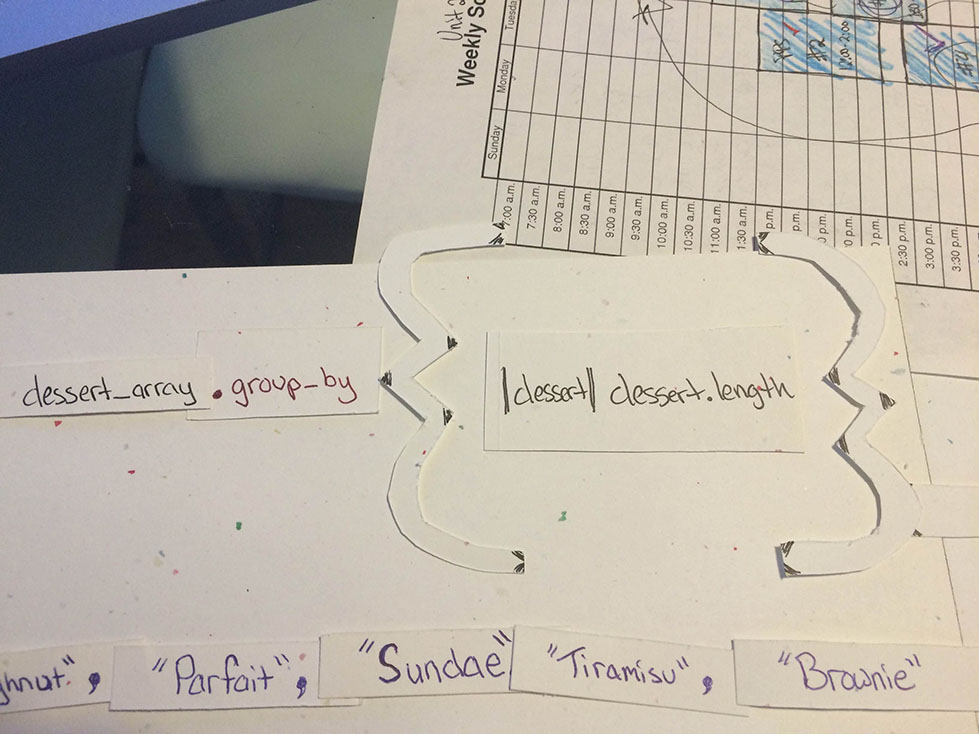 Unit
Weekly Sc
Sunday
Monday
Tuesday
7:00 a.m.
7:30 a.m.
8:00 a.m.
8:30 a.m.
9:00 a.m.
9:30 a.m.
10:00 a.m.
10:30 a.m.
11:00 a.m.
1:30 a.m.
p.m.
p.m.
0 p.m.
0 p.m.
0 p.m.
2:30 p.m.
3:00 p.m.
3:30 p.m.
#2
dessert_array .group_by |dessert| dessert.length
ghnut", "Parfait", "Sundae" "Tiramisu", "Brownie"